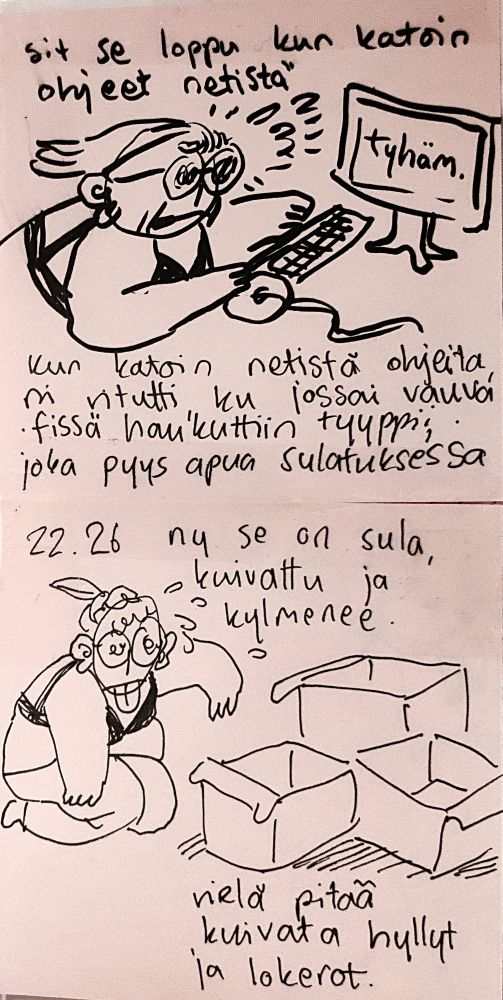 sit se loppu kun katoin
ohjeet netistä
tyhäm.
kun katoin netistä ohjeita,
ni vitutti ku jossai vauva
.fissä haukuttiin tyyppii,
joka pyys apua sulatuksessa
22.26 ny se on sula,
kuivattu ja
kylmenee.
vielä pitää
kuivata hyllyt
ja lokerot.